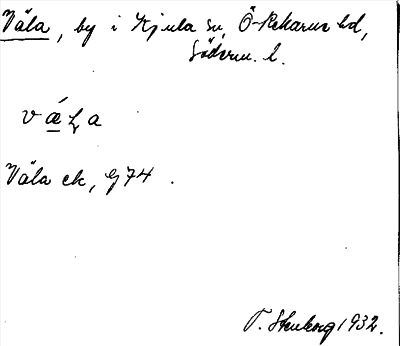 Väla, by i Kjula sn, Ö-Rekarne hd,
Söderm. l.
vǽɭa
Väla ek, G 74.
T. Stenberg 1932.